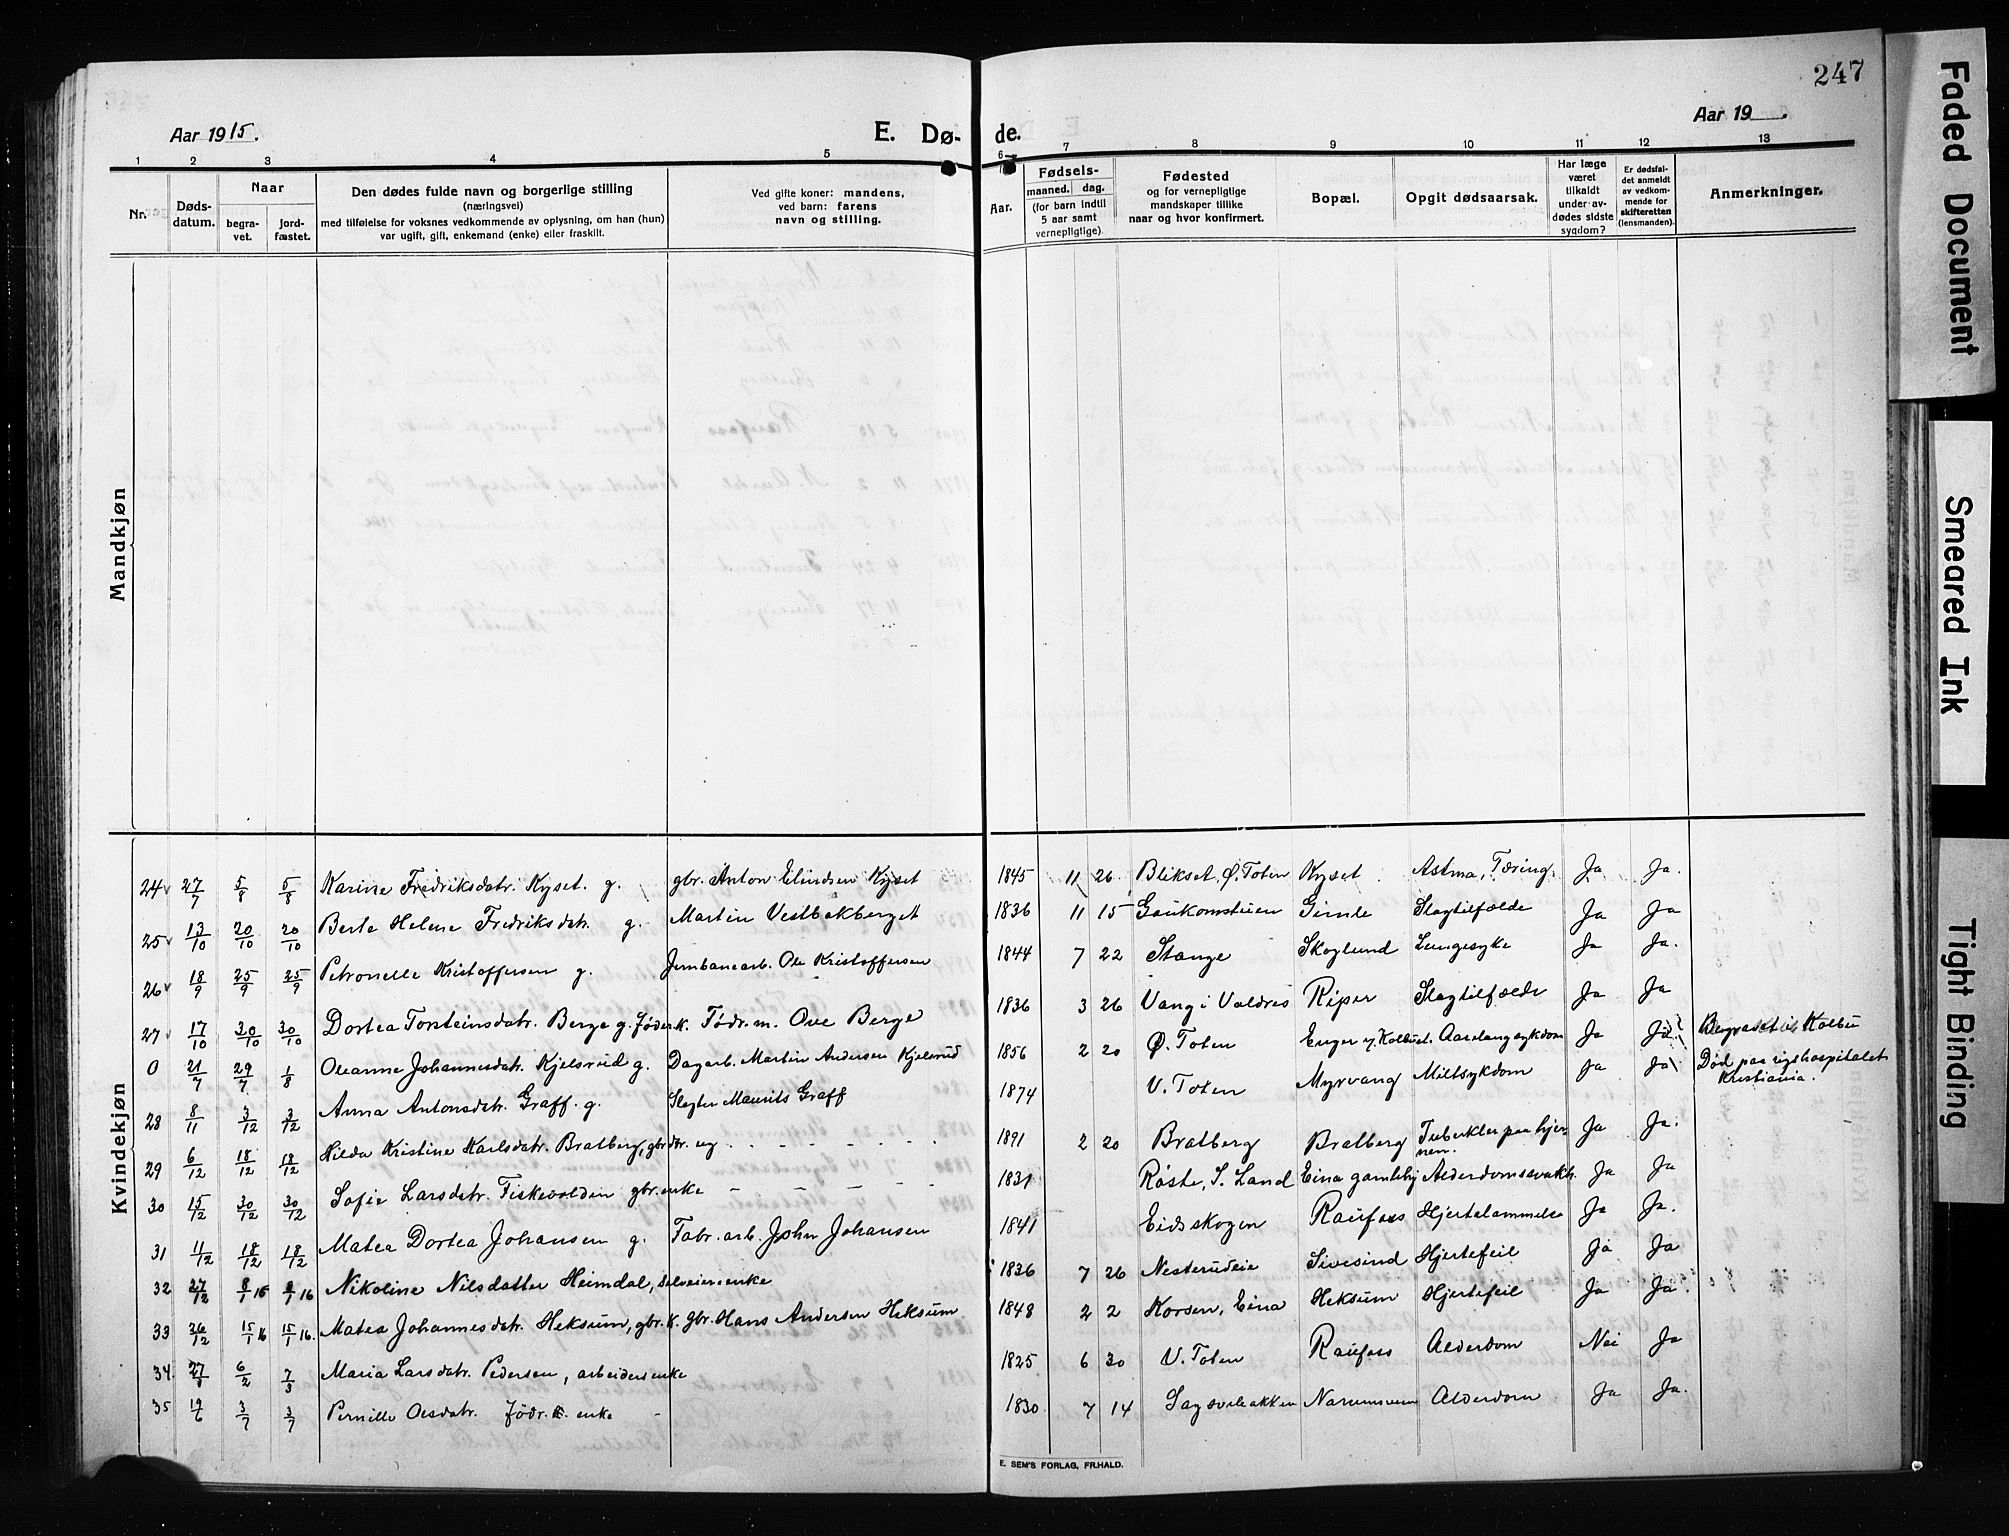 247
Aar 1915.
E. Dø-
de.
Aar 19
1 2 3 4 5 6 7 8 9 10 11 12 13
Nr.
Døds-
datum.
Naar
begra-
vet.
jord-
fæstet.
Den dødes fulde navn og borgerlige stilling
(næringsvei)
med tilføielse for voksnes vedkommende av oplysning, om han (hun)
var ugift, gift, enkemand (enke) eller fraskilt.
Ved gifte koner: mandens,
ved barn: farens
navn og stilling.
Aar.
Fødsels-
maaned. dag.
(for barn indtil
5 aar samt
vernepligtige).
Fødested
og for vernepligtige
mandskaper tillike
naar og hvor konfirmert.
Bopæl.
Opgit dødsaarsak.
Har læge
været
tilkaldt
under av-
dødes sidste
sygdom?
Er dødsfal-
det anmeldt
av vedkom-
mende for
skifteretten
(lensmanden).
Anmerkninger.
Mandkjøn
Kvindekjøn
24 27/7 5/8 5/8 Karine Fredriksdatr. Kyset. g. gbr. Anton Elindsen Kyset 1845 11 26 Blikset, Ø. Toten Kyset Astma, Tæring. Ja Ja.
25 13/10 20/10 20/10 Berte Helene Fredriksdtr. g. Martin Vestbakberget 1836 11 15 Gaukomstuen Girnle Slagtilfælde Ja Ja
26 18/9 25/9 25/9 Petronelle Kristoffersen g. Jernbanearb. Ole Kristoffersen 1844 7 22 Stange Skoglund Lungesyke Ja Ja.
27 17/10 30/10 30/10 Dortea Torsteinsdatr. Berge g. Føderk. Fødr.m. Ove Berge 1836 3 26 Vang i Valdres Riper Slagtilfælde Ja Ja
0 21/7 29/7 1/8 Oleanne Johannesdatr. Kjelsrud g. Dagarb. Martin Andersen Kjelsrud 1856 2 20 Ø. Toten Enger v/ Kolbu Ja Ja Begravet i Kolbu
28 8/11 3/12 3/12 Anna Antonsdtr. Graff. g. Slagter Maurits Graff 1874 V. Toten Myrvang Miltsykdom Ja Ja Død paa rigshospitalet
Kristiania.
29 6/12 18/12 18/12 Hilda Kristine Karlsdatr. Bratberg, gbrdtr. ug 1891 2 20 Bratberg Bratberg Tuberkler paa hjer-
nen. Ja Ja.
30 15/12 30/12 30/12 Sofie Larsdatr. Fiskevolden gbr. enke 1831 Røste, S. Land Eina gamlehj Alderdomssvakh. Ja Ja
31 11/12 18/12 18/12 Matea Dortea Johansen g. Fabr. arb. John Johansen 1841 Eidskogen Raufoss Hjertelammelse Ja Ja.
32 27/12 8/1 16 8/1 16 Nikoline Nilsdatter Heimdal, selveierenke 1836 7 26 Nesterudeie Sivesind Hjertefeil Ja Ja
33 26/12 15/1 16 15/1 16. Matea Johannesdtr. Heksum, gbr. k. gbr. Hans Andersen Heksum 1848 2 2 Korsen, Eina Heksum Hjertefeil Ja Ja.
34 6/2 7/3 Maria Larsdatr. Pedersen, arbeidersenke 1825 6 30 V. Toten Raufoss Alderdom Nei Ja
35 19/6 3/7 3/7 Pernille Olesdatr. Fødr. k. enke 1830 7 14 Alderdom Ja Ja.
E. SEM'S FORLAG, FR.HALD.
Faded Document
Smeared Ink
Tight Binding